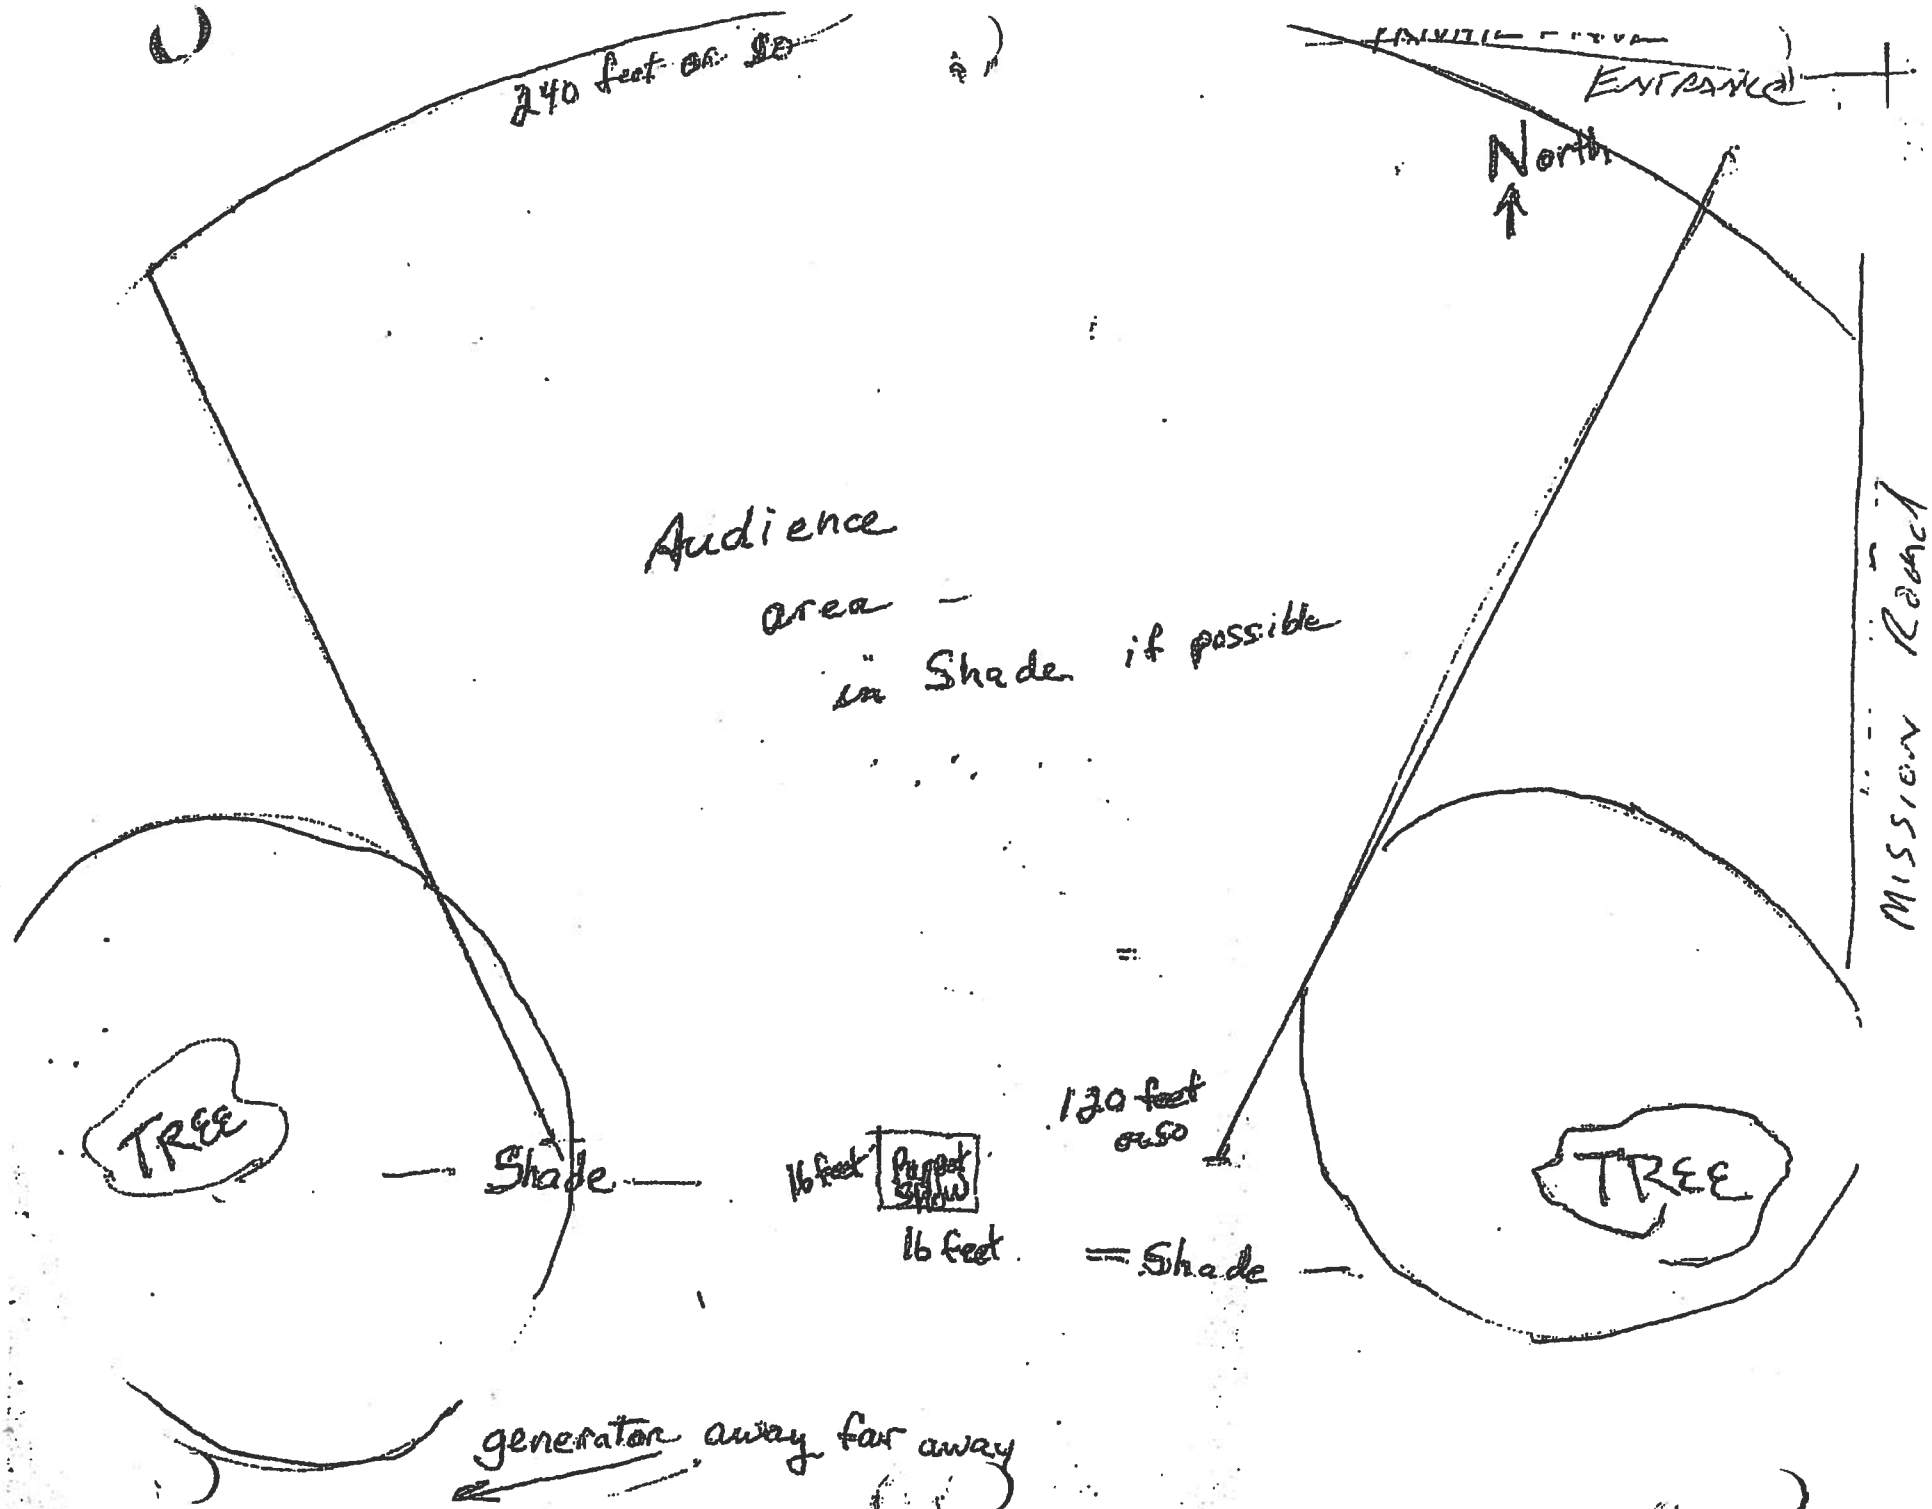 240 feet or so
ENTRANCE
North
Audience
area -
in Shade if possible
Mission Road
TREE
- Shade -
16 feet
Puppet
Show
16 feet
120 feet
or so
= Shade -
TREE
generator away far away